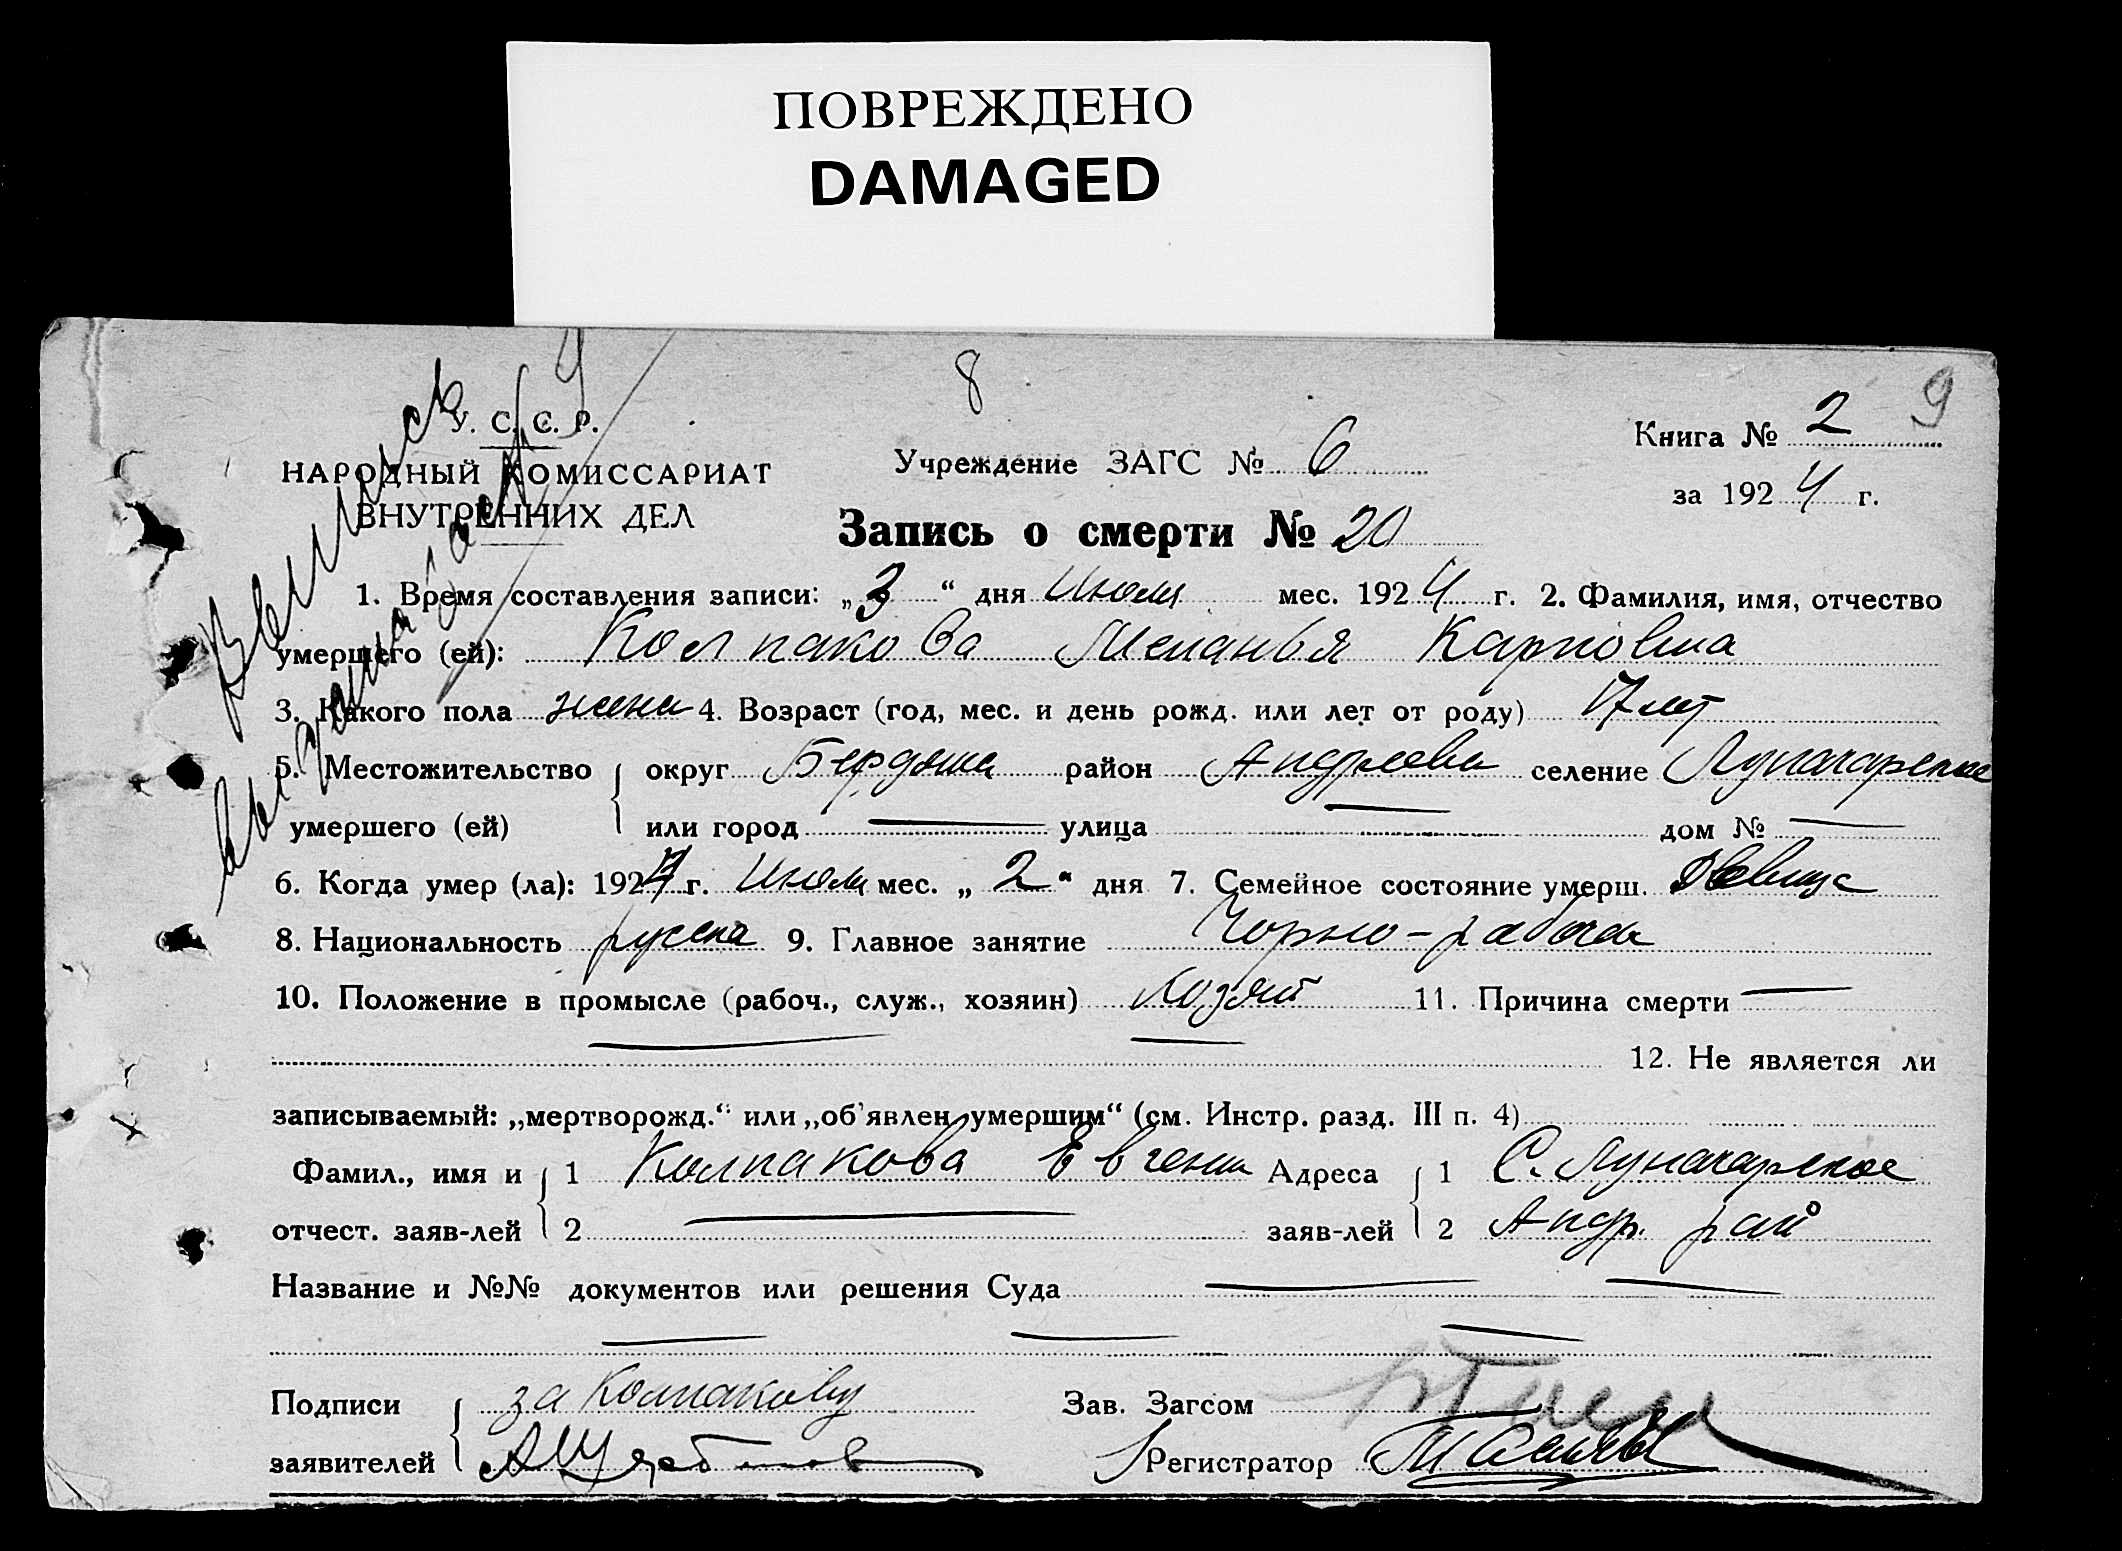 ПОВРЕЖДЕНО
DAMAGED
8
9
У. С. С. Р.
НАРОДНЫЙ КОМИССАРИАТ
ВНУТРЕННИХ ДЕЛ
Учреждение ЗАГС № 6
Книга № 2
за 1924 г.
Запись о смерти № 20
1. Время составления записи: „3“ дня Июля мес. 1924 г. 2. Фамилия, имя, отчество
умершего (ей): Колпакова Меланья Карповна
3. Какого пола женс 4. Возраст (год, мес. и день рожд. или лет от роду) 17 лет
5. Местожительство округ Бердянск район Андреевск селение Луначарское
умершего (ей) или город — улица — дом № —
6. Когда умер (ла): 1924 г. Июля мес. „2“ дня 7. Семейное состояние умерш. Девица
8. Национальность русска 9. Главное занятие Чорно-рабоча
10. Положение в промысле (рабоч., служ., хозяин) 11. Причина смерти —
— —
12. Не является ли
записываемый: „мертворожд.“ или „об'явлен умершим“ (см. Инстр. разд. III п. 4)
Фамил., имя и 1 Колпакова Евгения Адреса 1 С. Луначарское
отчест. заяв-лей 2 — заяв-лей 2 Андр. рай
Название и №№ документов или решения Суда — —
— — —
Подписи за Колпакову Зав. Загсом
заявителей Регистратор